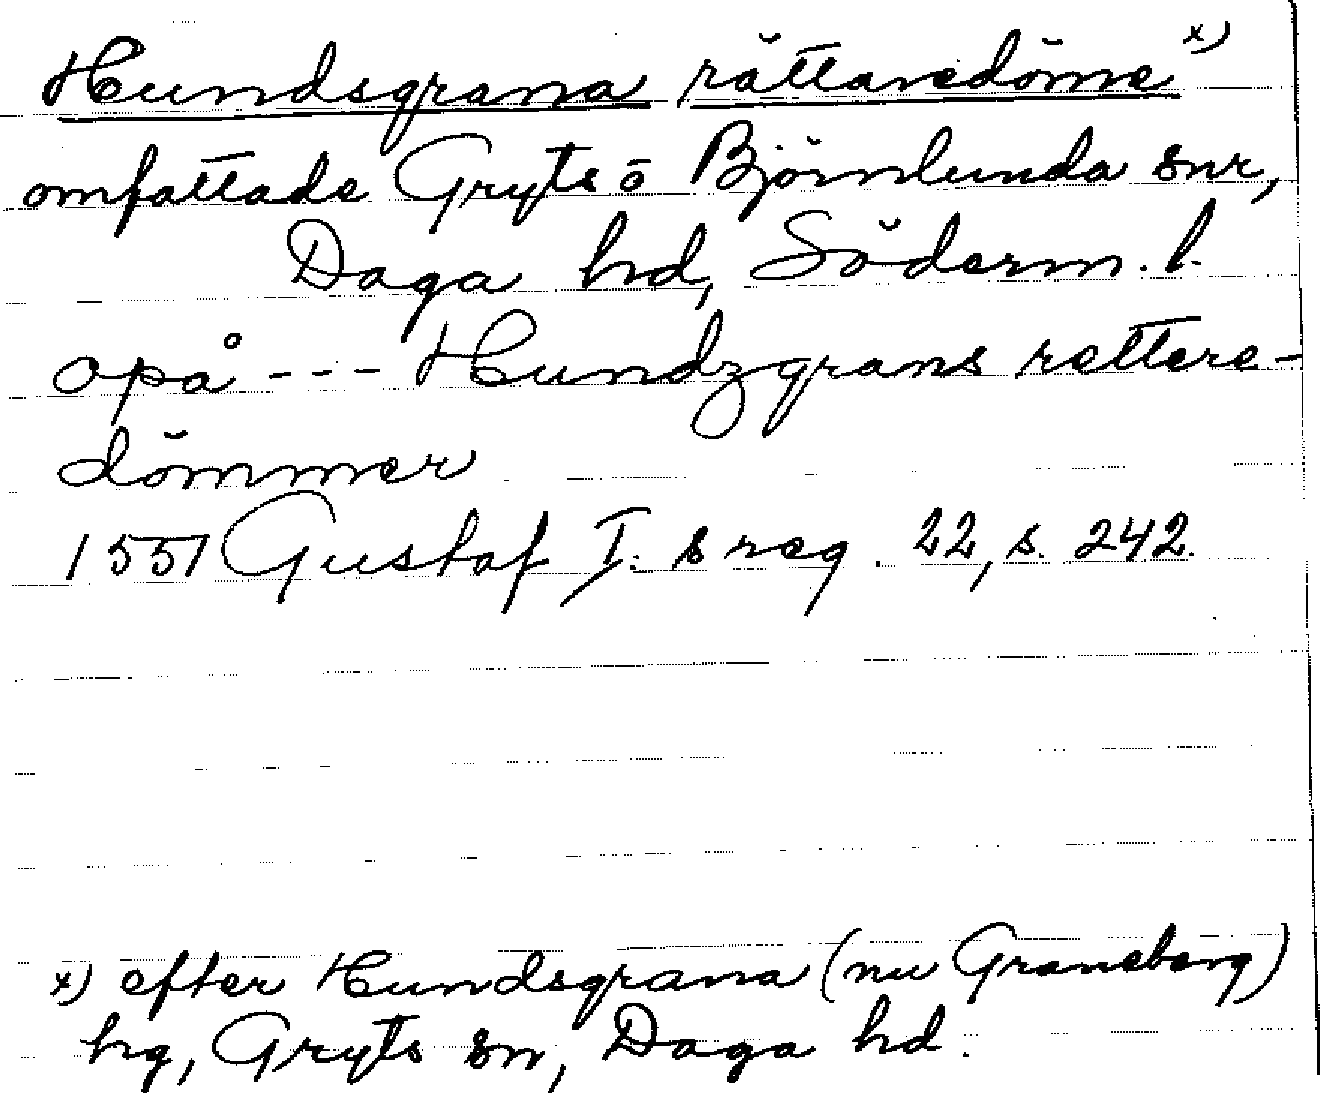 Hundsgrana rättaredöme x)
omfattade Gryts o Björnlunda snr,
Daga hd, Söderm. l.
opå --- Hundzgrans rettere-
dömmer
1551 Gustaf I:s reg. 22, s. 242.
x) efter Hundsgrana (nu Graneberg)
hg, Gryts sn, Daga hd.